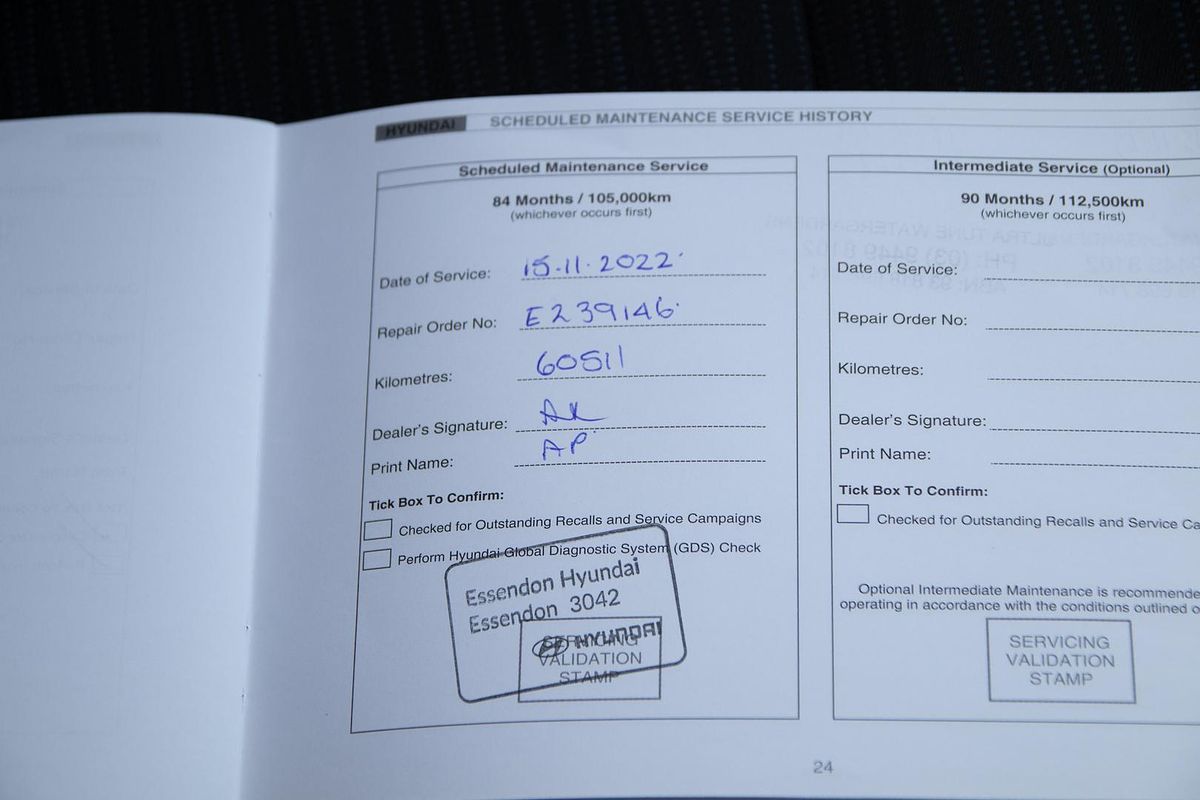 HYUNDAI SCHEDULED MAINTENANCE SERVICE HISTORY
Scheduled Maintenance Service
84 Months / 105,000km
(whichever occurs first)
Date of Service: 15.11.2022.
Repair Order No: E239146.
Kilometres: 60511
Dealer's Signature:
Print Name: AP
Tick Box To Confirm:
Checked for Outstanding Recalls and Service Campaigns
Perform Hyundai Global Diagnostic System (GDS) Check
Essendon Hyundai
Essendon 3042
HYUNDAI
SERVICING
VALIDATION
STAMP
Intermediate Service (Optional)
90 Months / 112,500km
(whichever occurs first)
Date of Service:
Repair Order No:
Kilometres:
Dealer's Signature:
Print Name:
Tick Box To Confirm:
Checked for Outstanding Recalls and Service Ca
Optional Intermediate Maintenance is recommende
operating in accordance with the conditions outlined o
SERVICING
VALIDATION
STAMP
24